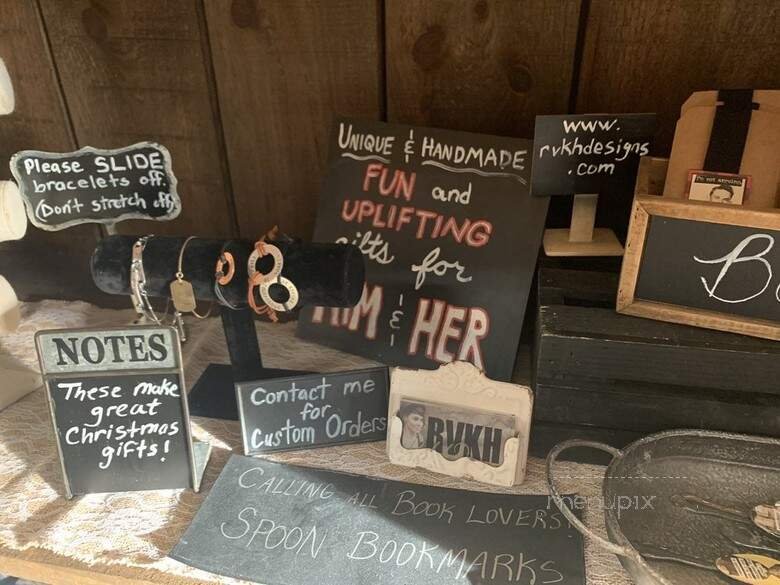 Please SLIDE
bracelets off.
(Don't stretch off)
UNIQUE & HANDMADE
FUN and
UPLIFTING
gifts for
HIM & HER
www.
rvkhdesigns
.com
NOTES
These make
great
Christmas
gifts!
Contact me
for
Custom Orders
RVKH
CALLING ALL BOOK LOVERS!
SPOON BOOKMARKS
menupix